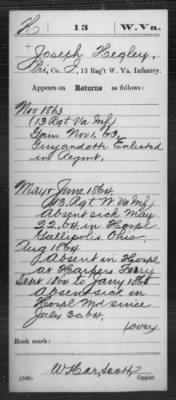 H | 13 | W.Va.
Joseph Hegley
Pvt, Co. I, 13 Reg't W. Va. Infantry.
Appears on Returns as follows:
Nov 1863
(13 Rgt Va Inf)
Gain Nov 1, 63,
Guyandott Enlisted
in Regmt.
May & June 1864
13 Rgt W Va Inf
Absent sick May
22, 64 in Hospl
Gallipolis Ohio
Aug 1864
Absent in Hospl
at Harpers Ferry
Sept 1864 to Jany 1865
Absent sick in
Hospl Md since
July 30 64.
(over)
Book mark:
(546)
W Harscott
Copyist.